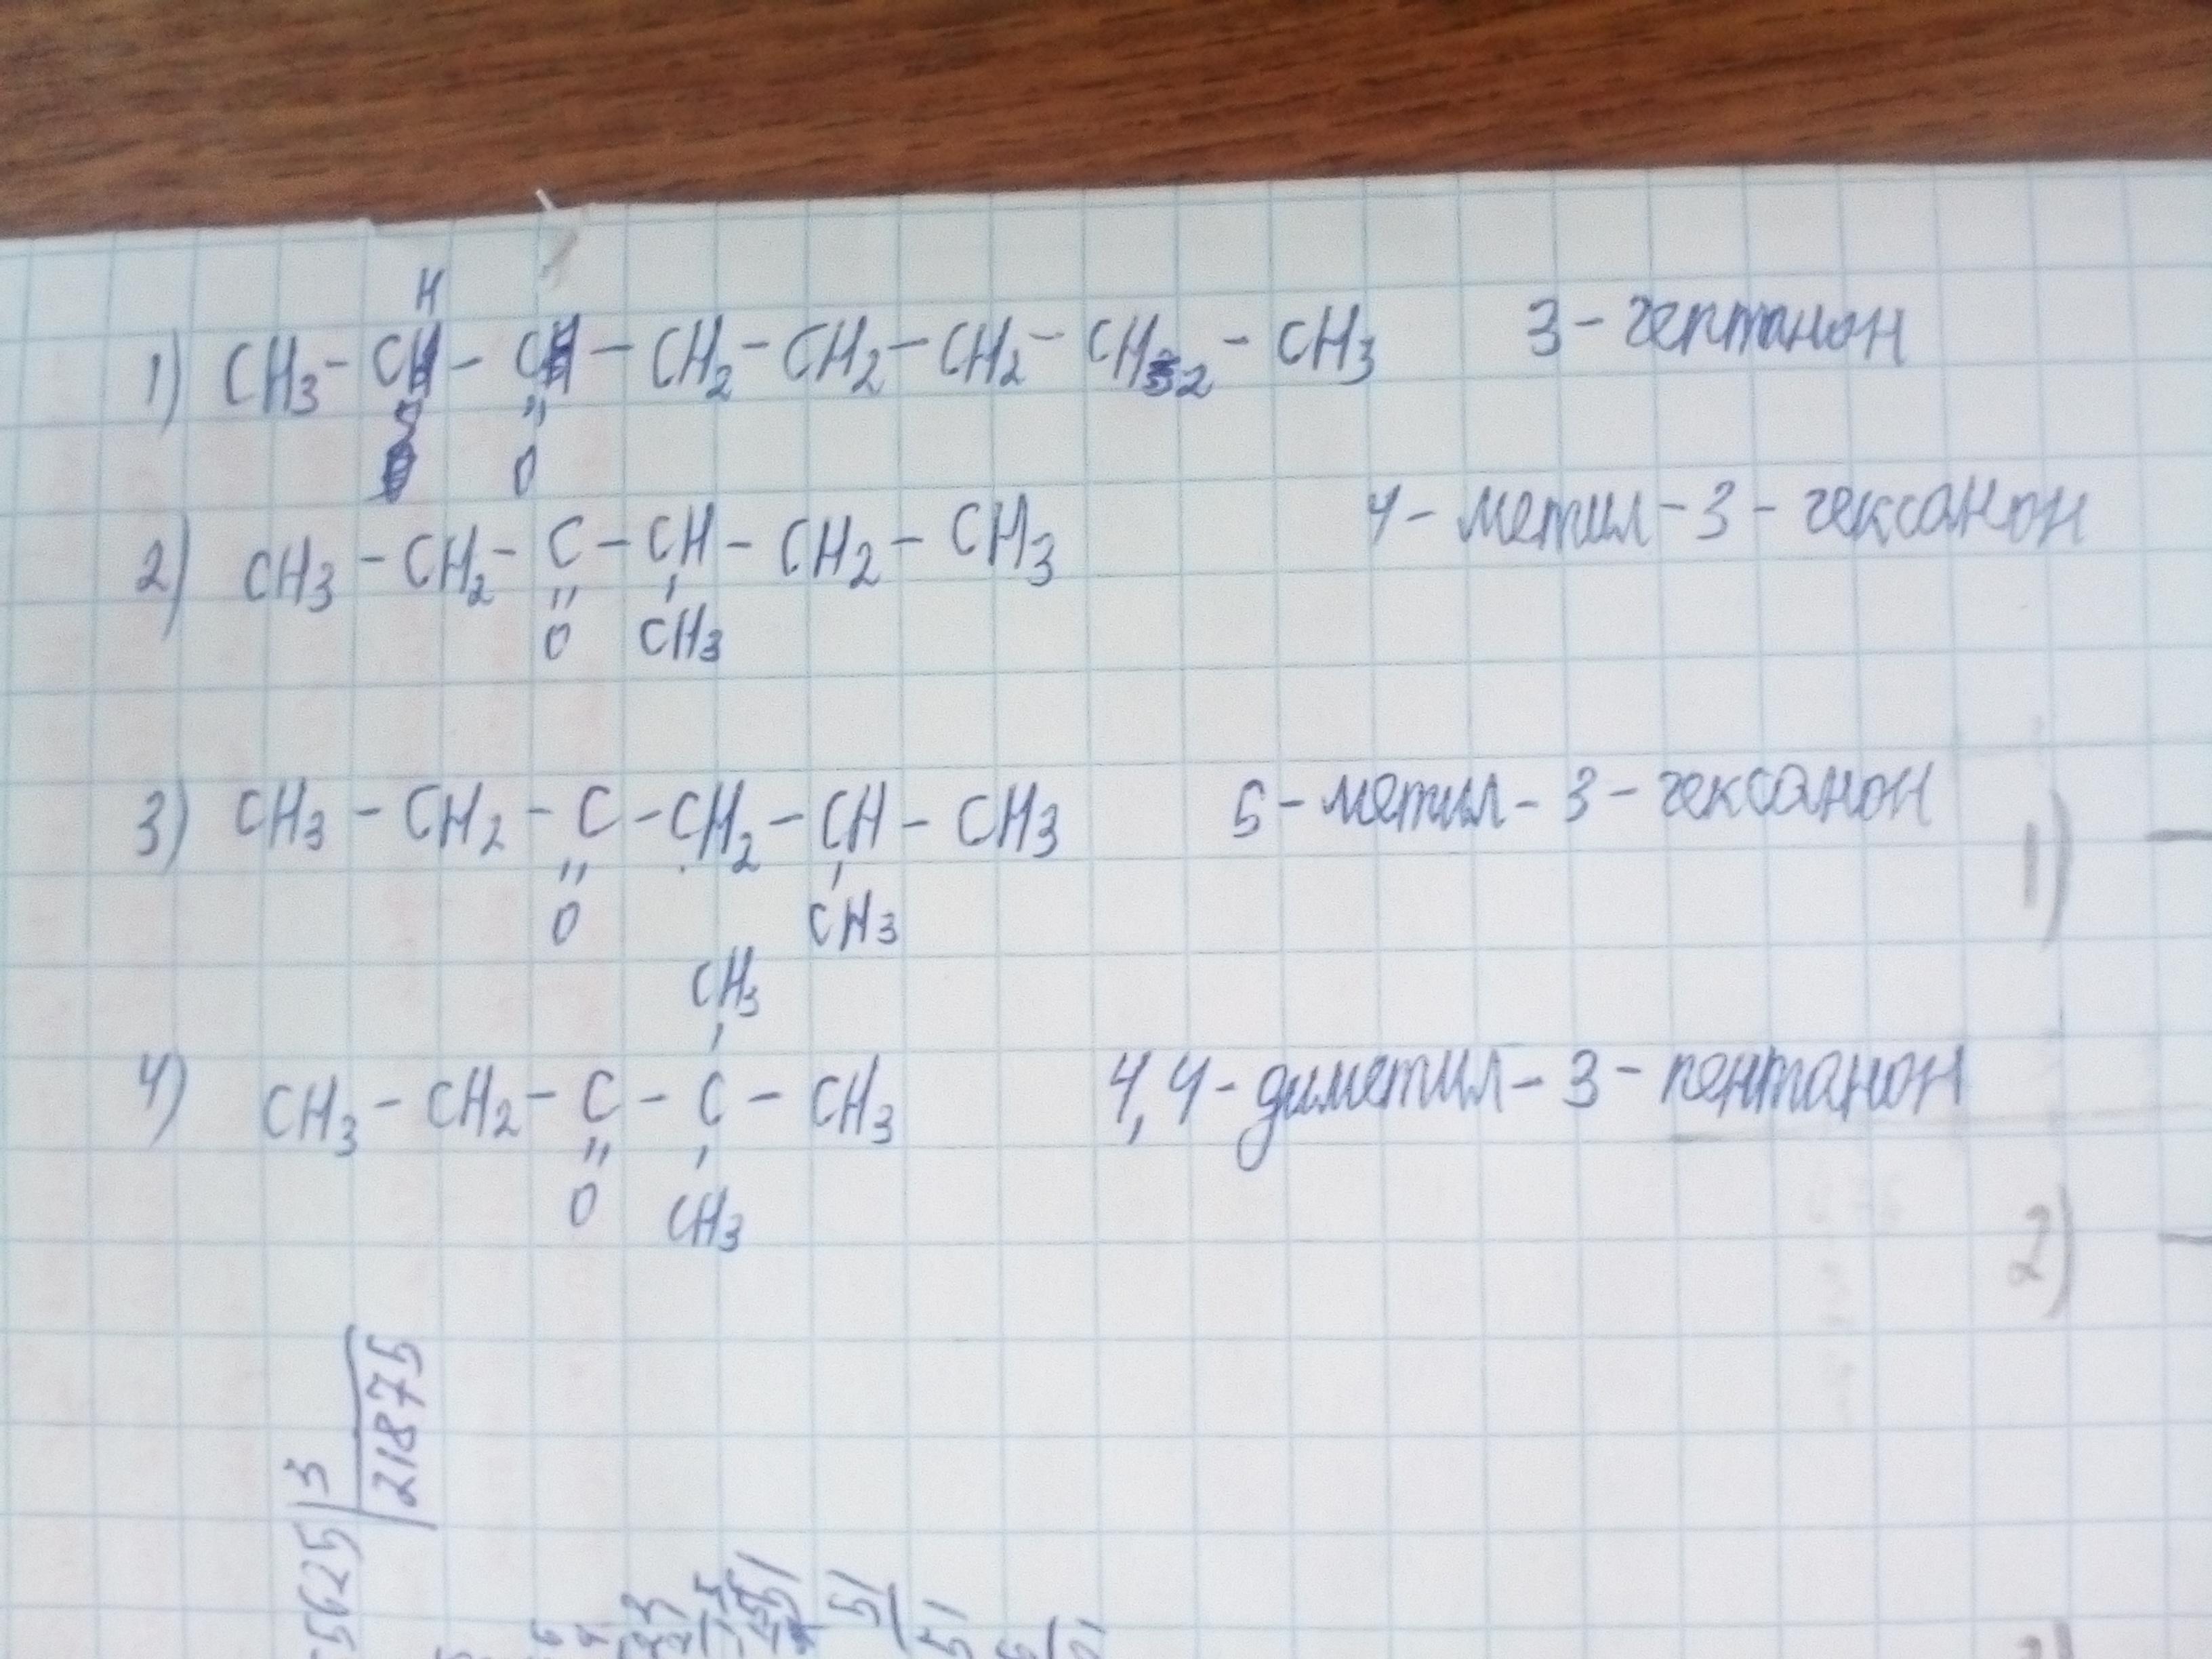 H
1) CH3 - C - C - CH2 - CH2 - CH2 - CH2 - CH3 3 - гептанон
" O
2) CH3 - CH2 - C - CH - CH2 - CH3 4 - метил - 3 - гексанон
" '
O CH3
3) CH3 - CH2 - C - CH2 - CH - CH3 5 - метил - 3 - гексанон
" '
O CH3
CH3
'
4) CH3 - CH2 - C - C - CH3 4,4 - диметил - 3 - пентанон
" '
O CH3
1)
2)
65625 3
21875